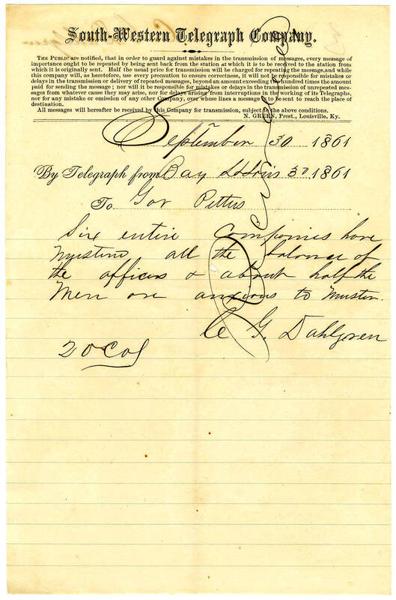 South-Western Telegraph Company.
THE PUBLIC are notified, that in order to guard against mistakes in the transmission of messages, every message of
importance ought to be repeated by being sent back from the station at which it is to be received to the station from
which it is originally sent. Half the usual price for transmission will be charged for repeating the message, and while
this company will, as heretofore, use every precaution to ensure correctness, it will not be responsible for mistakes or
delays in the transmission or delivery of repeated messages, beyond an amount exceeding five hundred times the amount
paid for sending the message; nor will it be responsible for mistakes or delays in the transmission of unrepeated messages
from whatever cause they may arise, nor for delays arising from interruptions in the working of its Telegraphs,
nor for any mistake or omission of any other Company, over whose lines a message is to be sent to reach the place of
destination.
All messages will hereafter be received by this Company for transmission, subject to the above conditions.
N. GREEN, Prest., Louisville, Ky.
September 30 1861
By Telegraph from Bay St Louis 30 1861
To Gov Pettus
Six entire Companies have
all the balance of
the officers & about half the
Men are anxious to Muster.
C G Dahlgren
20 Col